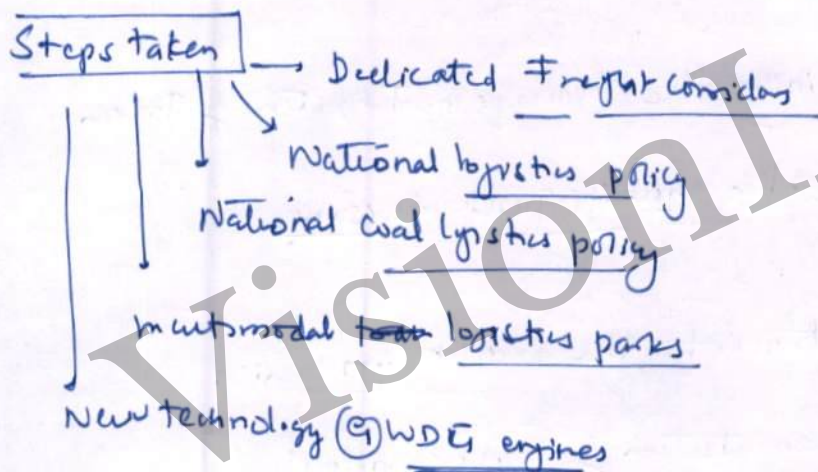 Steps taken
Dedicated Freight corridors
National logistics policy
National coal logistics policy
multimodal logistics parks
New technology eg WDG engines
VisionI